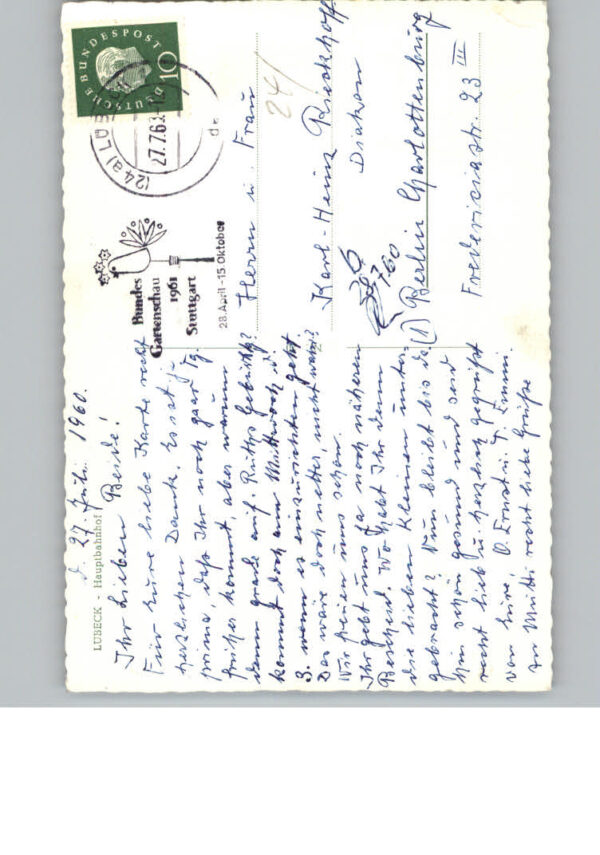 LÜBECK - Hauptbahnhof
27. Juli 1960.
Ihr Lieben Beide!
Für Eure liebe Karte recht
herzlichen Dank. Es ist ja
prima, daß Ihr noch paar Tg.
früher kommt, aber warum
denn grade auf Geburtstg?
kommt doch am Mittwoch d.
3. wenn es einzurichten geht.
Das wäre doch netter, nicht wahr?
Wir freuen uns schon.
Ihr gebt uns ja noch näheren
Bescheid. Wo habt Ihr denn
die lieben Kleinen unter-
gebracht? Nun bleibt bis da-
hin schön gesund und seid
recht lieb u. herzlich gegrüßt
von Eure, O. Ernst u. T.
an Mutti recht liebe Grüße
DEUTSCHE BUNDESPOST
10
(24a) LÜBECK
27.7.6
Bundes
Gartenschau
1961
Stuttgart
28. April - 15 Oktober
24
Herrn u. Frau
Karl-Heinz Rieckhoff
Diakon
(1) Berlin Charlottenburg
Fredericiastr. 23 III